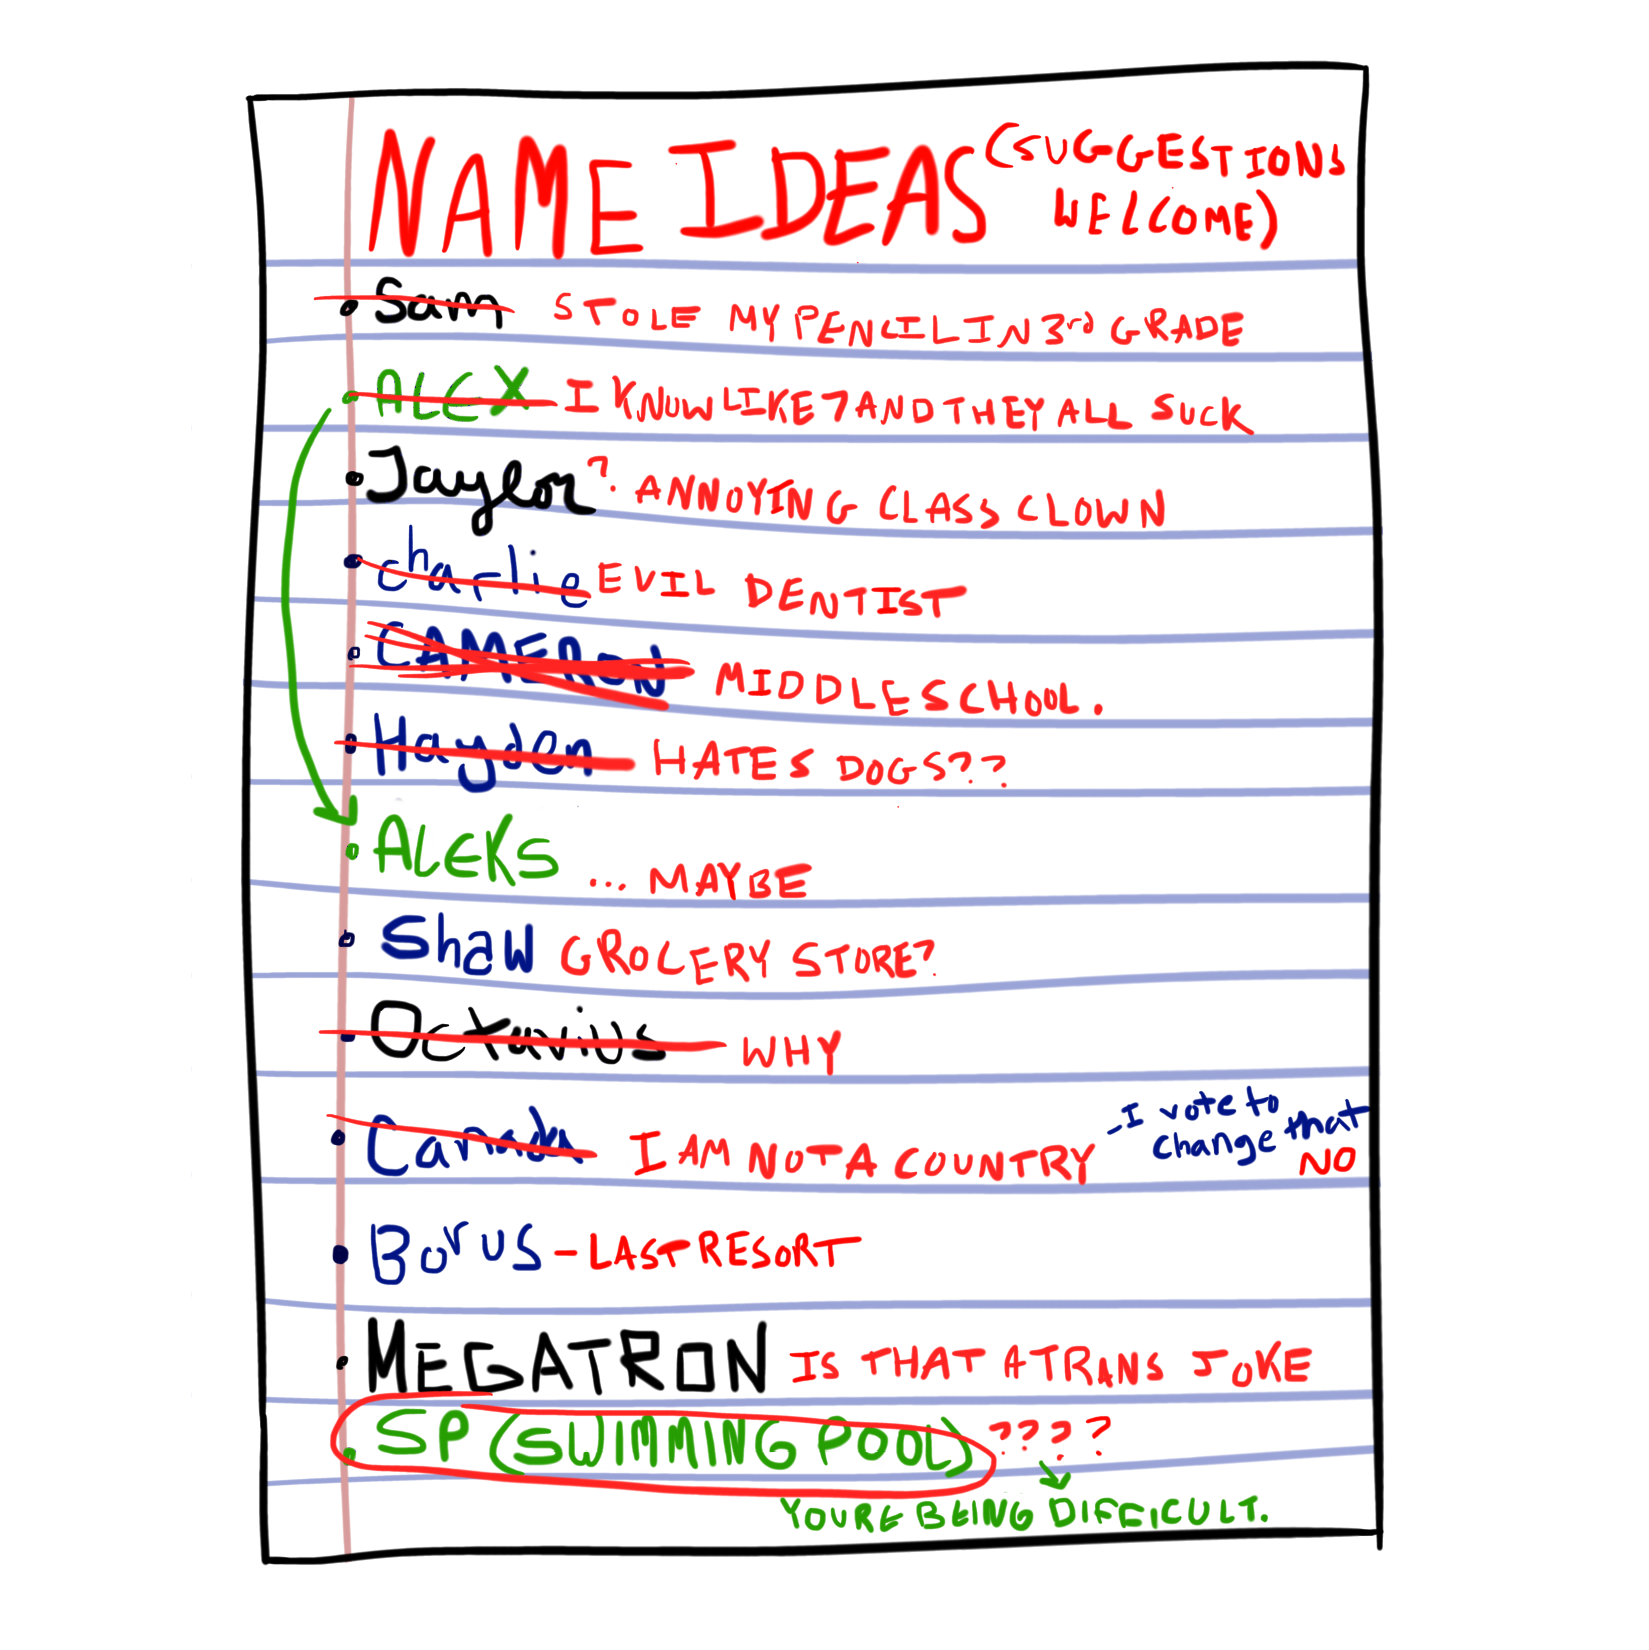 NAME IDEAS (SUGGESTIONS WELCOME)
• Sam STOLE MY PENCIL IN 3rd GRADE
• ALEX I KNOW LIKE 7 AND THEY ALL SUCK
• Jaylor? ANNOYING CLASS CLOWN
• charlie EVIL DENTIST
• CAMERON MIDDLE SCHOOL.
• Hayden HATES DOGS??
• ALEKS ... MAYBE
• Shaw GROCERY STORE?
• Octavius WHY
• Canada I AM NOT A COUNTRY - I vote to change that NO
• Borus - LAST RESORT
• MEGATRON IS THAT A TRANS JOKE
• SP (SWIMMING POOL) ????
YOURE BEING DIFFICULT.